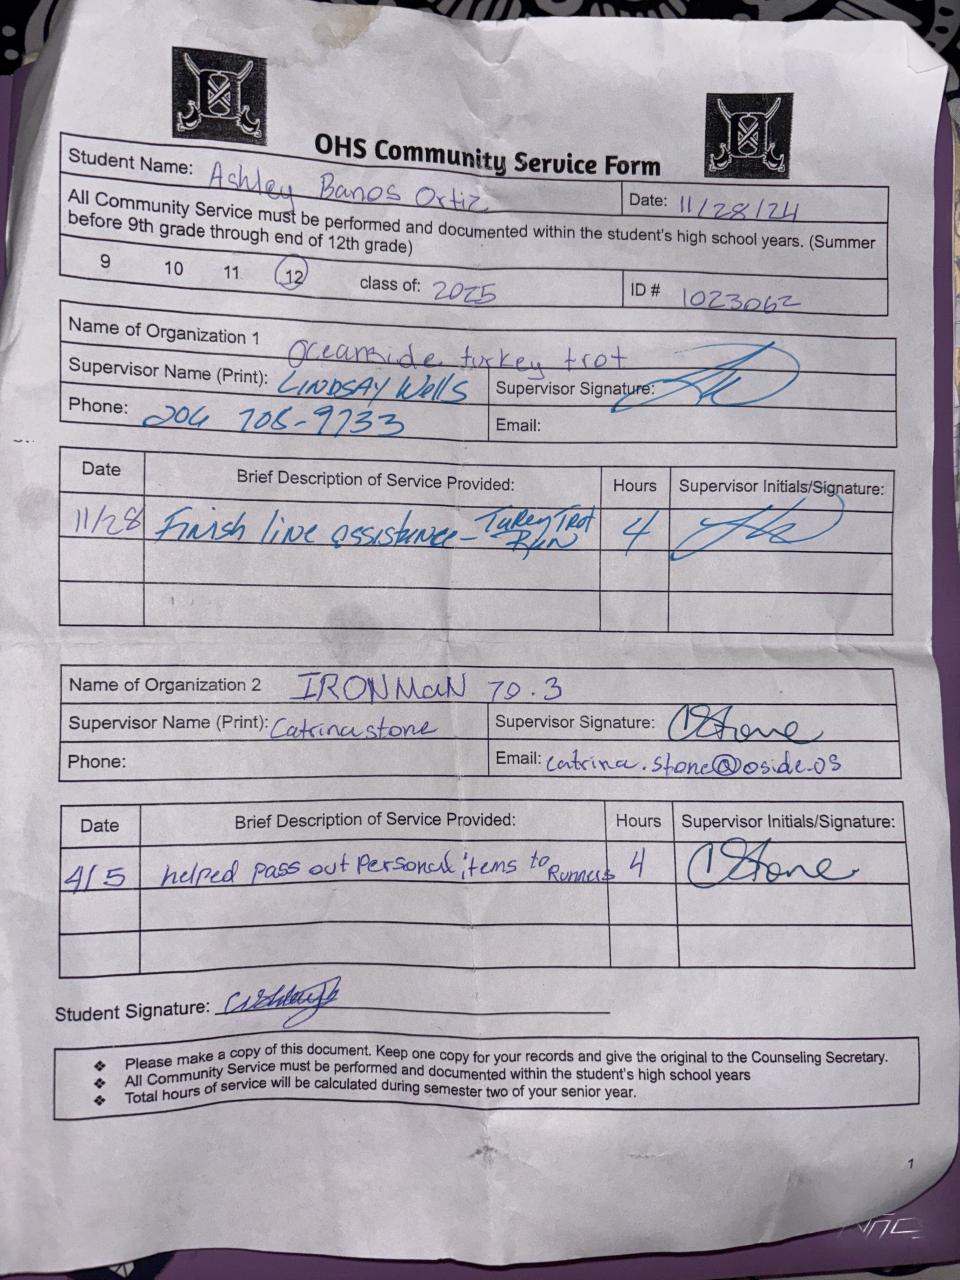 OHS Community Service Form
Student Name: Ashley Banos Ortiz
Date: 11/28/24
All Community Service must be performed and documented within the student's high school years. (Summer
before 9th grade through end of 12th grade)
9 10 11 12 class of: 2025
ID # 1023062
Name of Organization 1 Oceanside turkey trot
Supervisor Name (Print): LINDSAY Wells
Supervisor Signature:
Phone: 204 708-9733
Email:
Date Brief Description of Service Provided: Hours Supervisor Initials/Signature:
11/28 Finish line assistance - Turkey Trot
Run
4
Name of Organization 2 IRONMaN 70.3
Supervisor Name (Print): Catrina stone
Supervisor Signature: CStone
Phone:
Email: catrina.stone@oside.os
Date Brief Description of Service Provided: Hours Supervisor Initials/Signature:
4/5 helped pass out personal items to Runners 4 CStone
Student Signature:
❖ Please make a copy of this document. Keep one copy for your records and give the original to the Counseling Secretary.
❖ All Community Service must be performed and documented within the student's high school years
❖ Total hours of service will be calculated during semester two of your senior year.
1